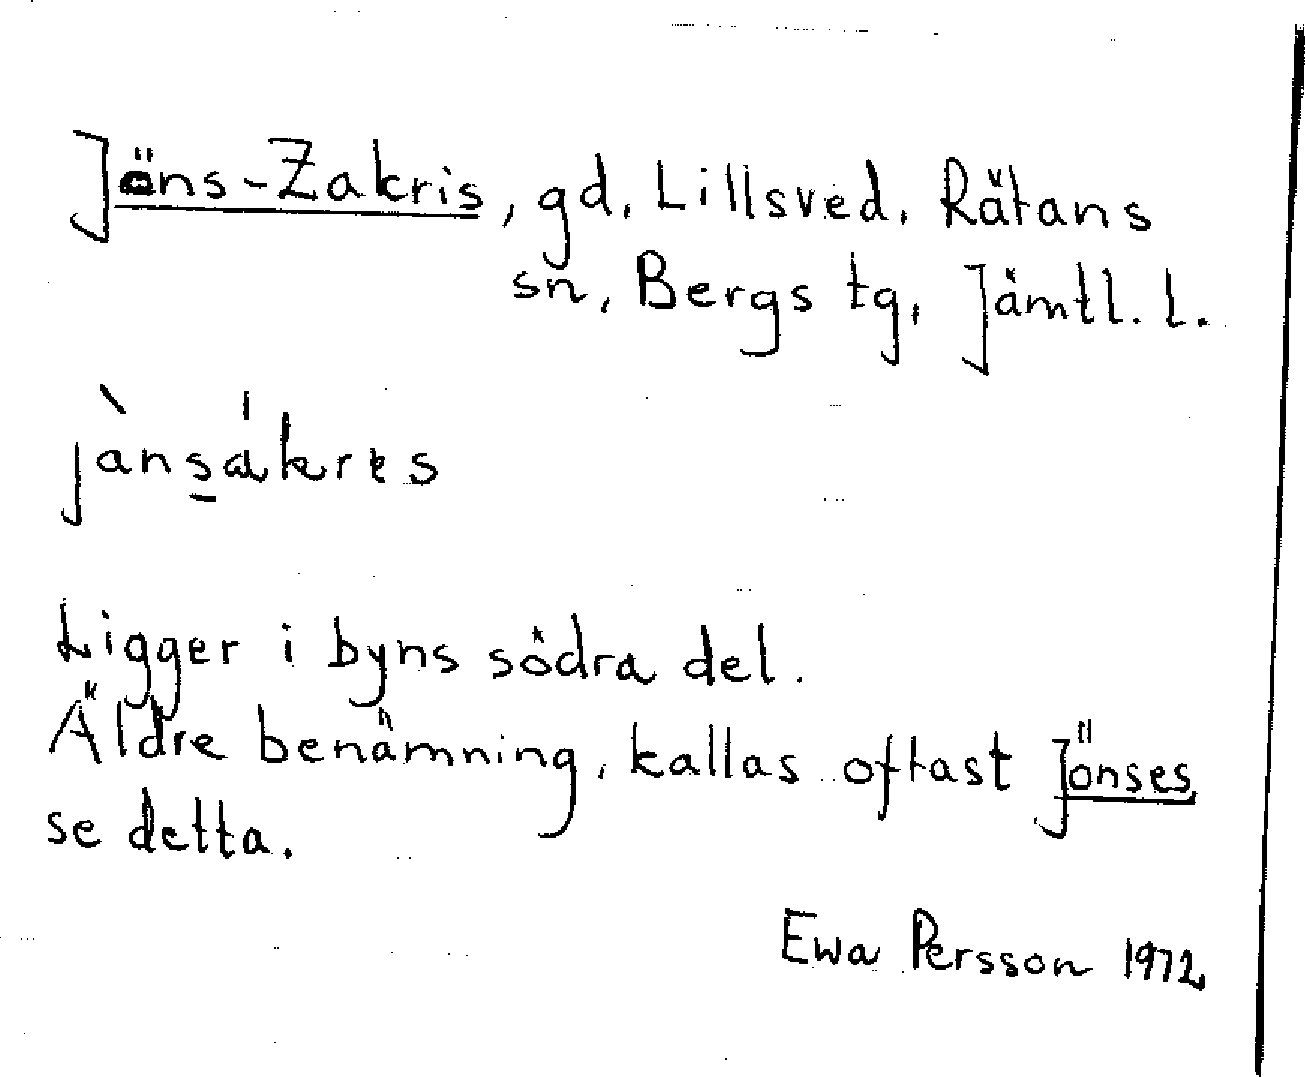 Jöns-Zakris, gd, Lillsved, Rätans
sn, Bergs tg, Jämtl. l.
jànsákres
Ligger i byns södra del.
Äldre benämning, kallas oftast Jönses
se detta.
Ewa Persson 1972